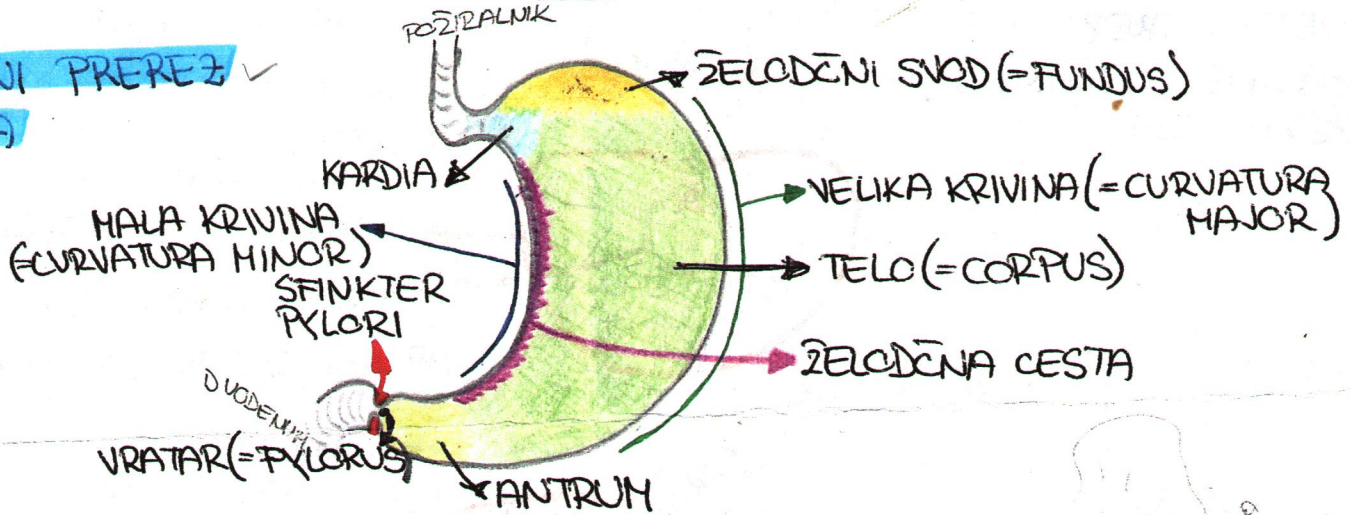 POŽIRALNIK
NI PREREZ ✓
ŽELODČNI SVOD (=FUNDUS)
KARDIA
VELIKA KRIVINA (=CURVATURA
MAJOR)
MALA KRIVINA
(=CURVATURA MINOR)
TELO (=CORPUS)
SFINKTER
PYLORI
ŽELODČNA CESTA
DUODENUM
VRATAR (=PYLORUS)
ANTRUM